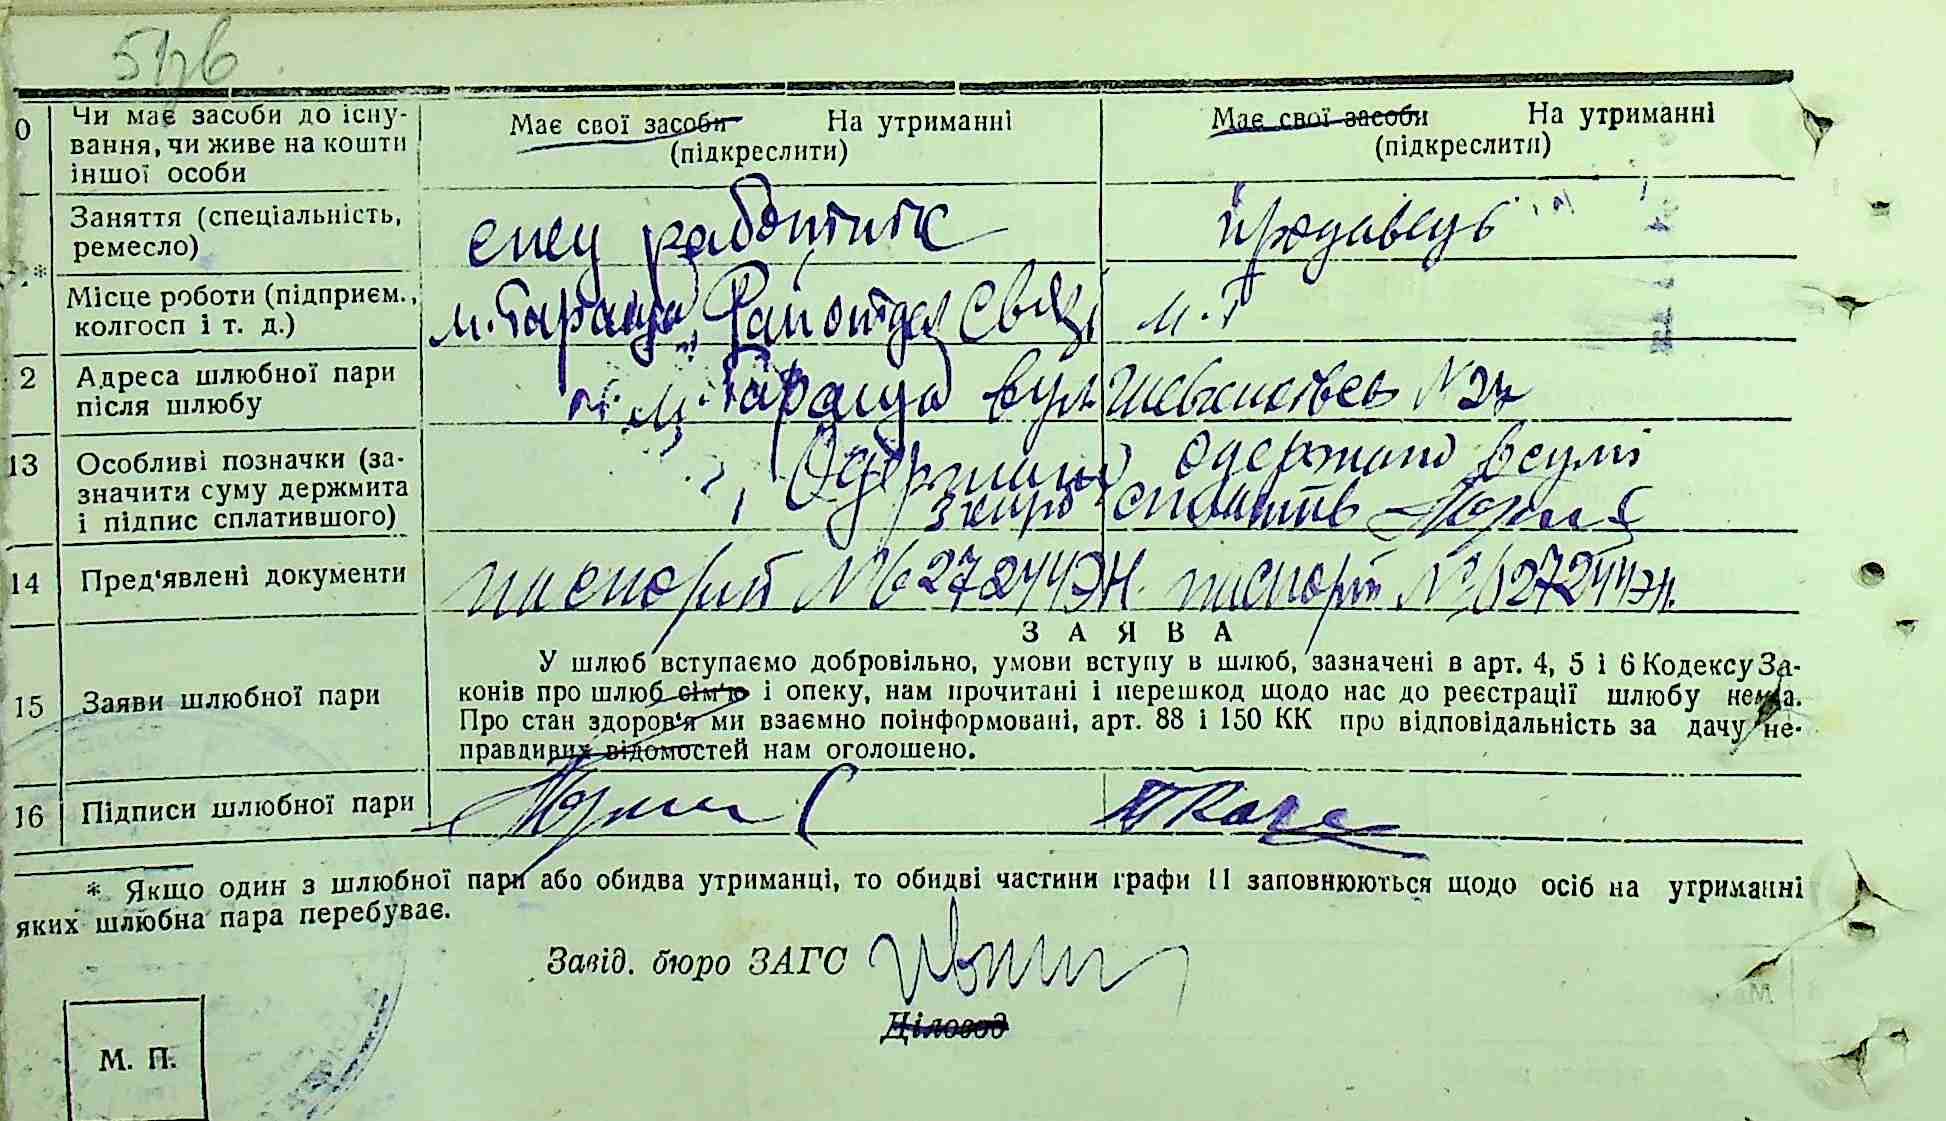 0 Чи має засоби до існу- Має свої засоби На утриманні Має свої засоби На утриманні
вання, чи живе на кошти (підкреслити) (підкреслити)
іншої особи
Заняття (спеціальність,
ремесло) спец работник продавець
* Місце роботи (підприєм., м. Тараща, Райотдел Связі м. Т
колгосп і т. д.)
2 Адреса шлюбної пари м. Тараща вул.
після шлюбу
13 Особливі позначки (за- Одержано одержано в сумі
значити суму держмита
і підпис сплатившого)
14 Пред'явлені документи паспорт паспорт
З А Я В А
У шлюб вступаємо добровільно, умови вступу в шлюб, зазначені в арт. 4, 5 і 6 Кодексу За-
15 Заяви шлюбної пари конів про шлюб сім'ю і опеку, нам прочитані і перешкод щодо нас до реєстрації шлюбу нема.
Про стан здоров'я ми взаємно поінформовані, арт. 88 і 150 КК про відповідальність за дачу не-
правдивих відомостей нам оголошено.
16 Підписи шлюбної пари
* Якщо один з шлюбної пари або обидва утриманці, то обидві частини графи 11 заповнюються щодо осіб на утриманні
яких шлюбна пара перебуває.
Завід. бюро ЗАГС
Діловод
М. П.